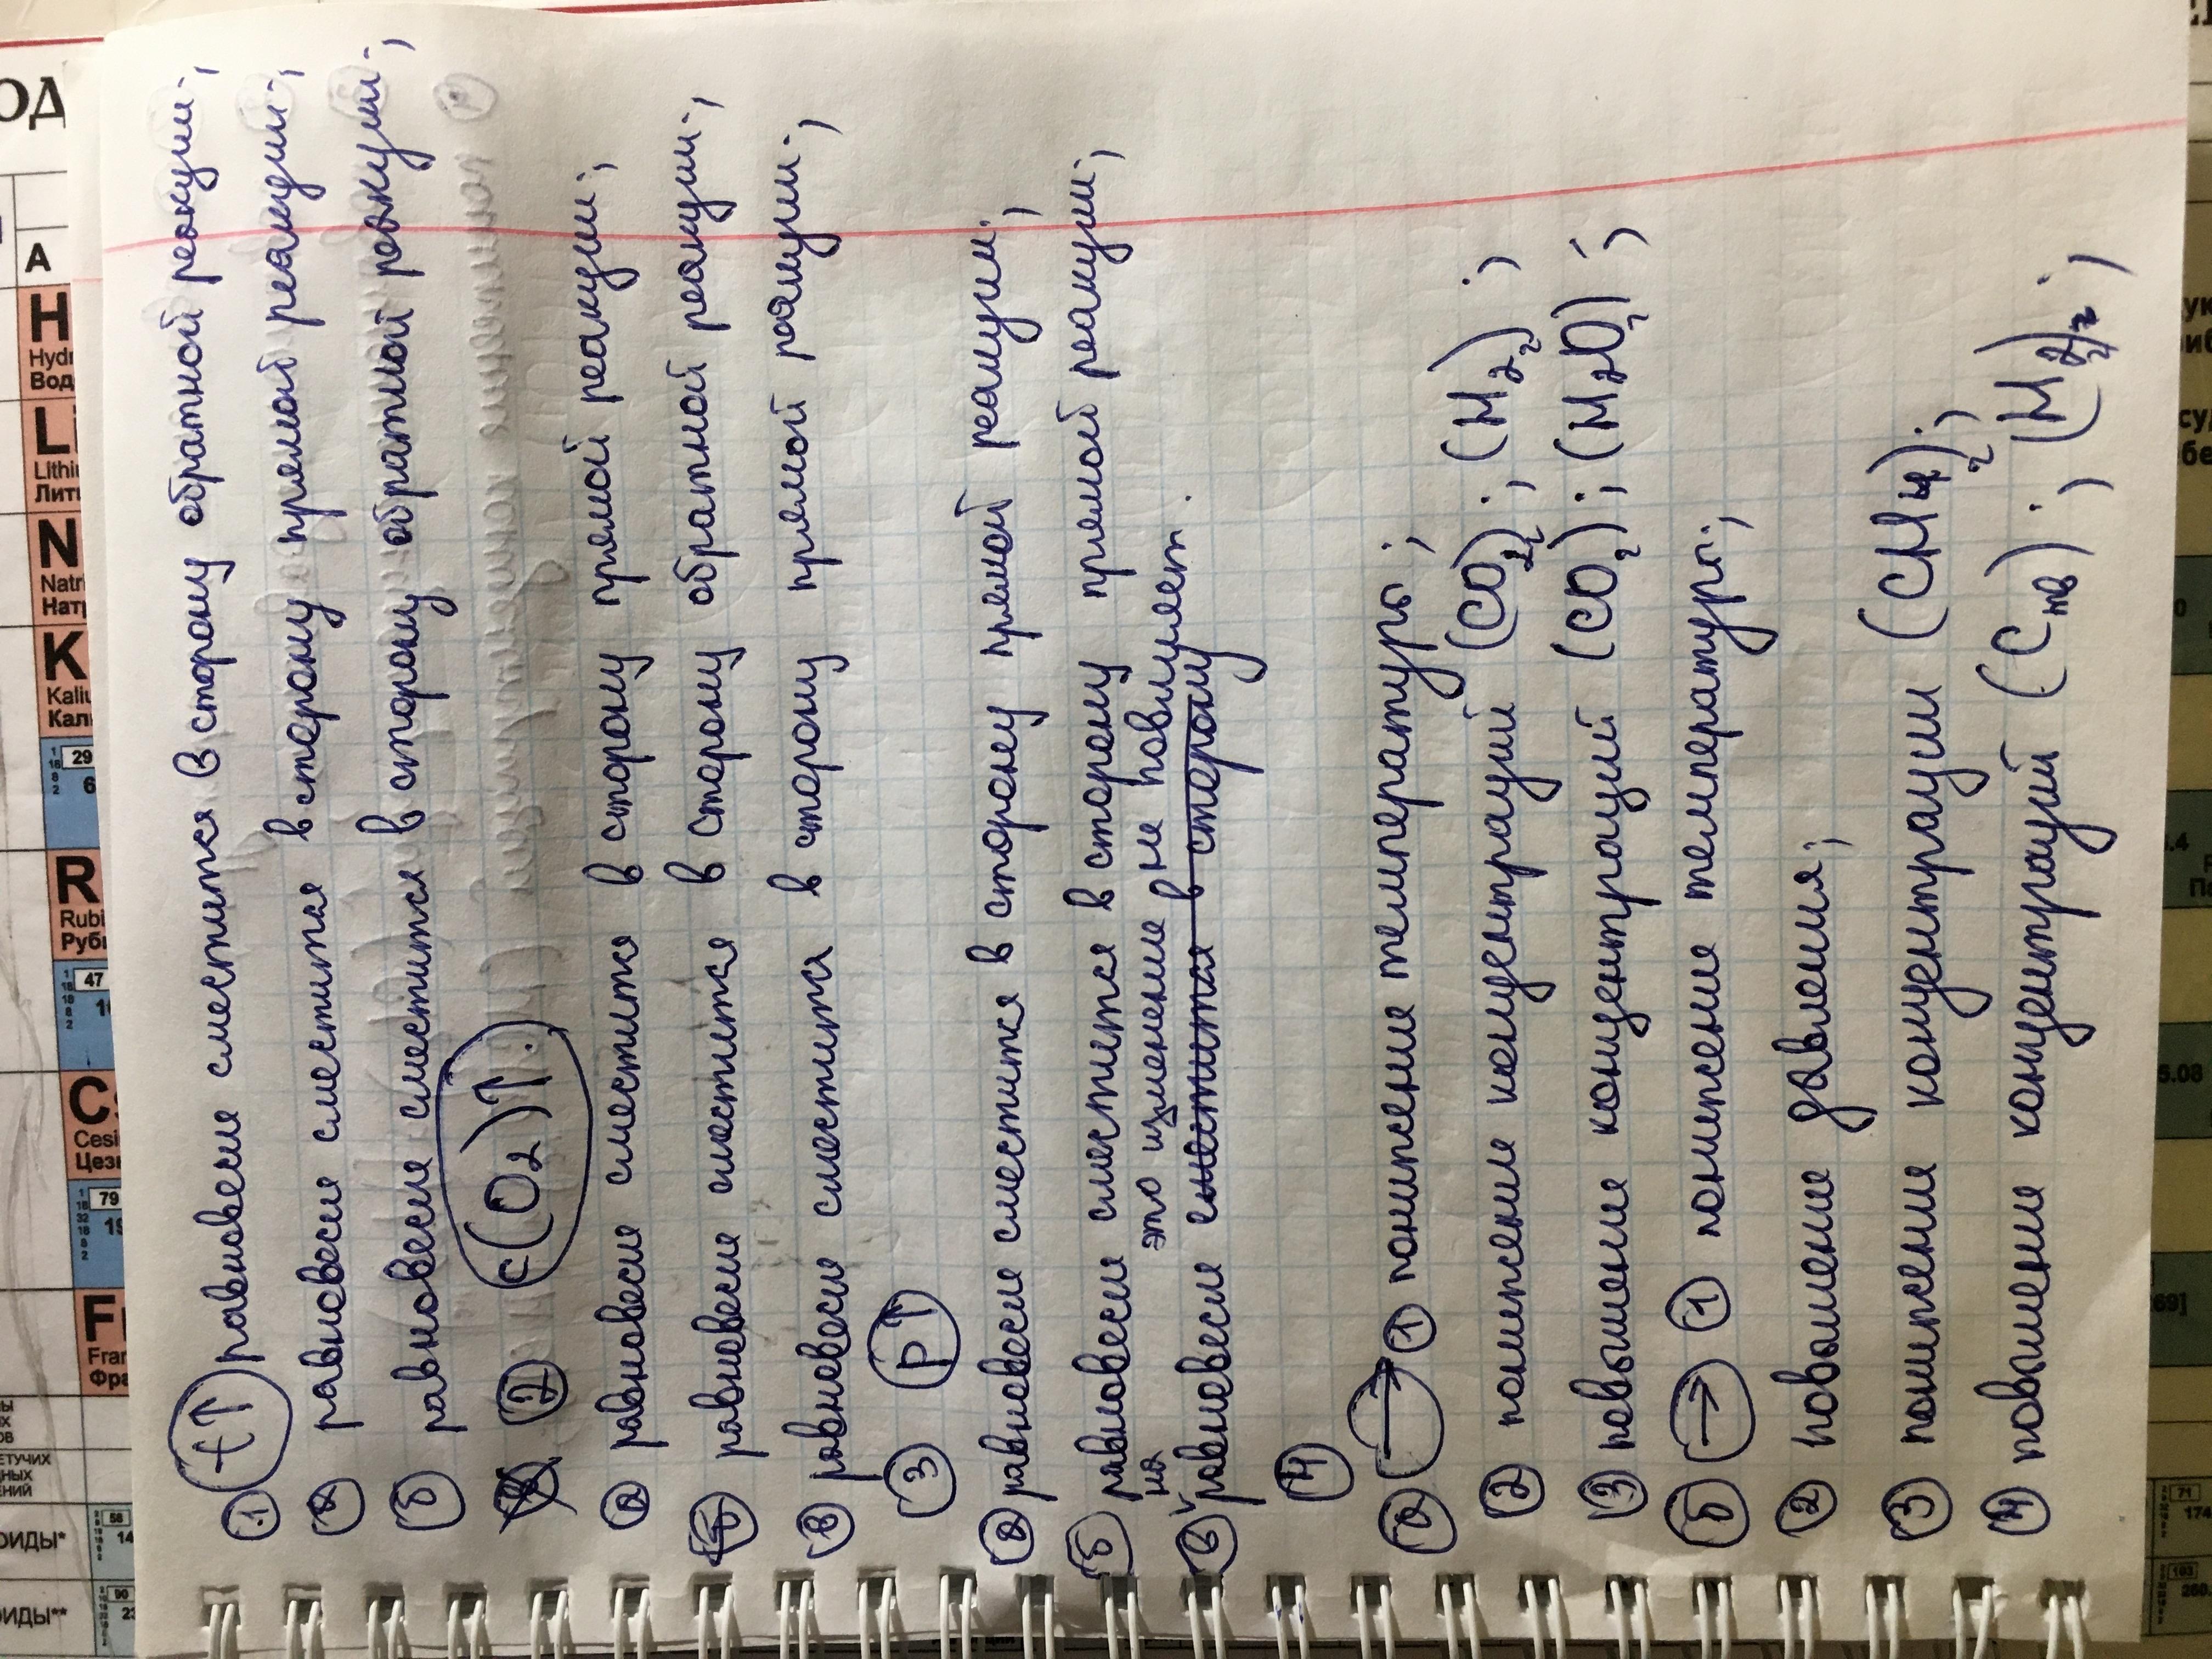 ① t↑ равновесие сместится в сторону обратной реакции;
ⓐ равновесие сместится в сторону прямой реакции;
ⓑ равновесие сместится в сторону обратной реакции;
② c(O₂)↑.
ⓐ равновесие сместится в сторону прямой реакции;
ⓑ равновесие сместится в сторону обратной реакции;
ⓑ равновесие сместится в сторону прямой реакции;
③ p↑
ⓐ равновесие сместится в сторону прямой реакции;
ⓑ равновесие сместится в сторону прямой реакции;
на равновесие это изменение не повлияет.
сместится в сторону
④
ⓐ → ① понижение температуры;
② понижение концентраций (CO₂)₂; (H₂)₂;
③ повышение концентраций (CO₂); (H₂O)₂;
Ⓑ → ① понижение температуры;
② повышение давления;
③ понижение концентрации (CH₄)₂;
④ повышение концентраций (Cтв); (H₂)₂;
ОД
А
H
Hydr
Вод
Li
Lithi
Лити
N
Natri
Натр
K
Kaliu
Кали
29
R
Rubi
Руби
47
Cs
Cesi
Цези
79
Fr
Fran
Фра
ОИДЫ*
58
14
ОИДЫ**
90
23
5.08
71
174
103